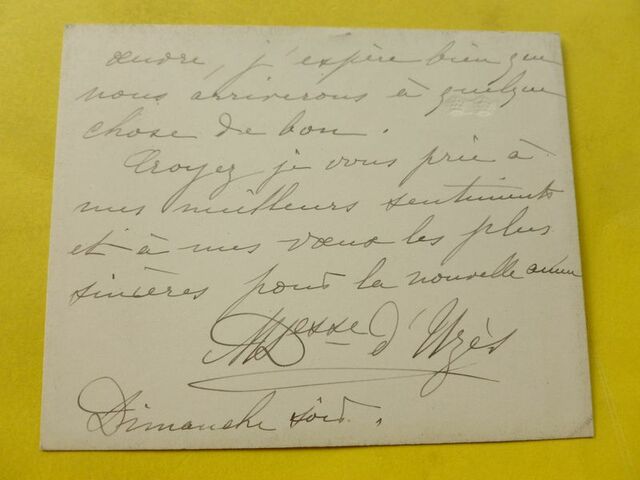 j'espère bien que
nous arriverons à quelque
chose de bon.
Croyez je vous prie à
mes meilleurs sentiments
et à mes vœux les plus
sincères pour la nouvelle année
Desse d'Uzès
Dimanche soir.